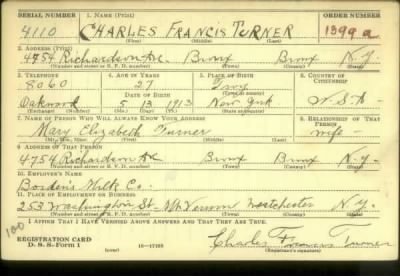 SERIAL NUMBER 1. NAME (Print) ORDER NUMBER
4110 CHARLES FRANCIS TURNER 1399 a
(First) (Middle) (Last)
2. ADDRESS (Print)
4754 Richardson Ave. Bronx Bronx N.Y.
(Number and street or R. F. D. number) (Town) (County) (State)
3. TELEPHONE 4. AGE IN YEARS 5. PLACE OF BIRTH 6. COUNTRY OF CITIZENSHIP
8060 27 Troy
DATE OF BIRTH
Oakwood 5 13 1913 New York U.S.A.
(Exchange) (Number) (Mo.) (Day) (Yr.) (Town or county) (State or country)
7. NAME OF PERSON WHO WILL ALWAYS KNOW YOUR ADDRESS 8. RELATIONSHIP OF THAT PERSON
Mary Elizabeth Turner wife
(Mr., Mrs., Miss) (First) (Middle) (Last)
9. ADDRESS OF THAT PERSON
4754 Richardson Ave Bronx Bronx N.Y.
(Number and street or R. F. D. number) (Town) (County) (State)
10. EMPLOYER'S NAME
Bordens Milk Co.
11. PLACE OF EMPLOYMENT OR BUSINESS
253 Washington St. Mt. Vernon Westchester N.Y.
(Number and street or R. F. D. number) (Town) (County) (State)
I AFFIRM THAT I HAVE VERIFIED ABOVE ANSWERS AND THAT THEY ARE TRUE.
100
REGISTRATION CARD
D. S. S. Form 1 16—17105 Charles Francis Turner
(Registrant's signature)